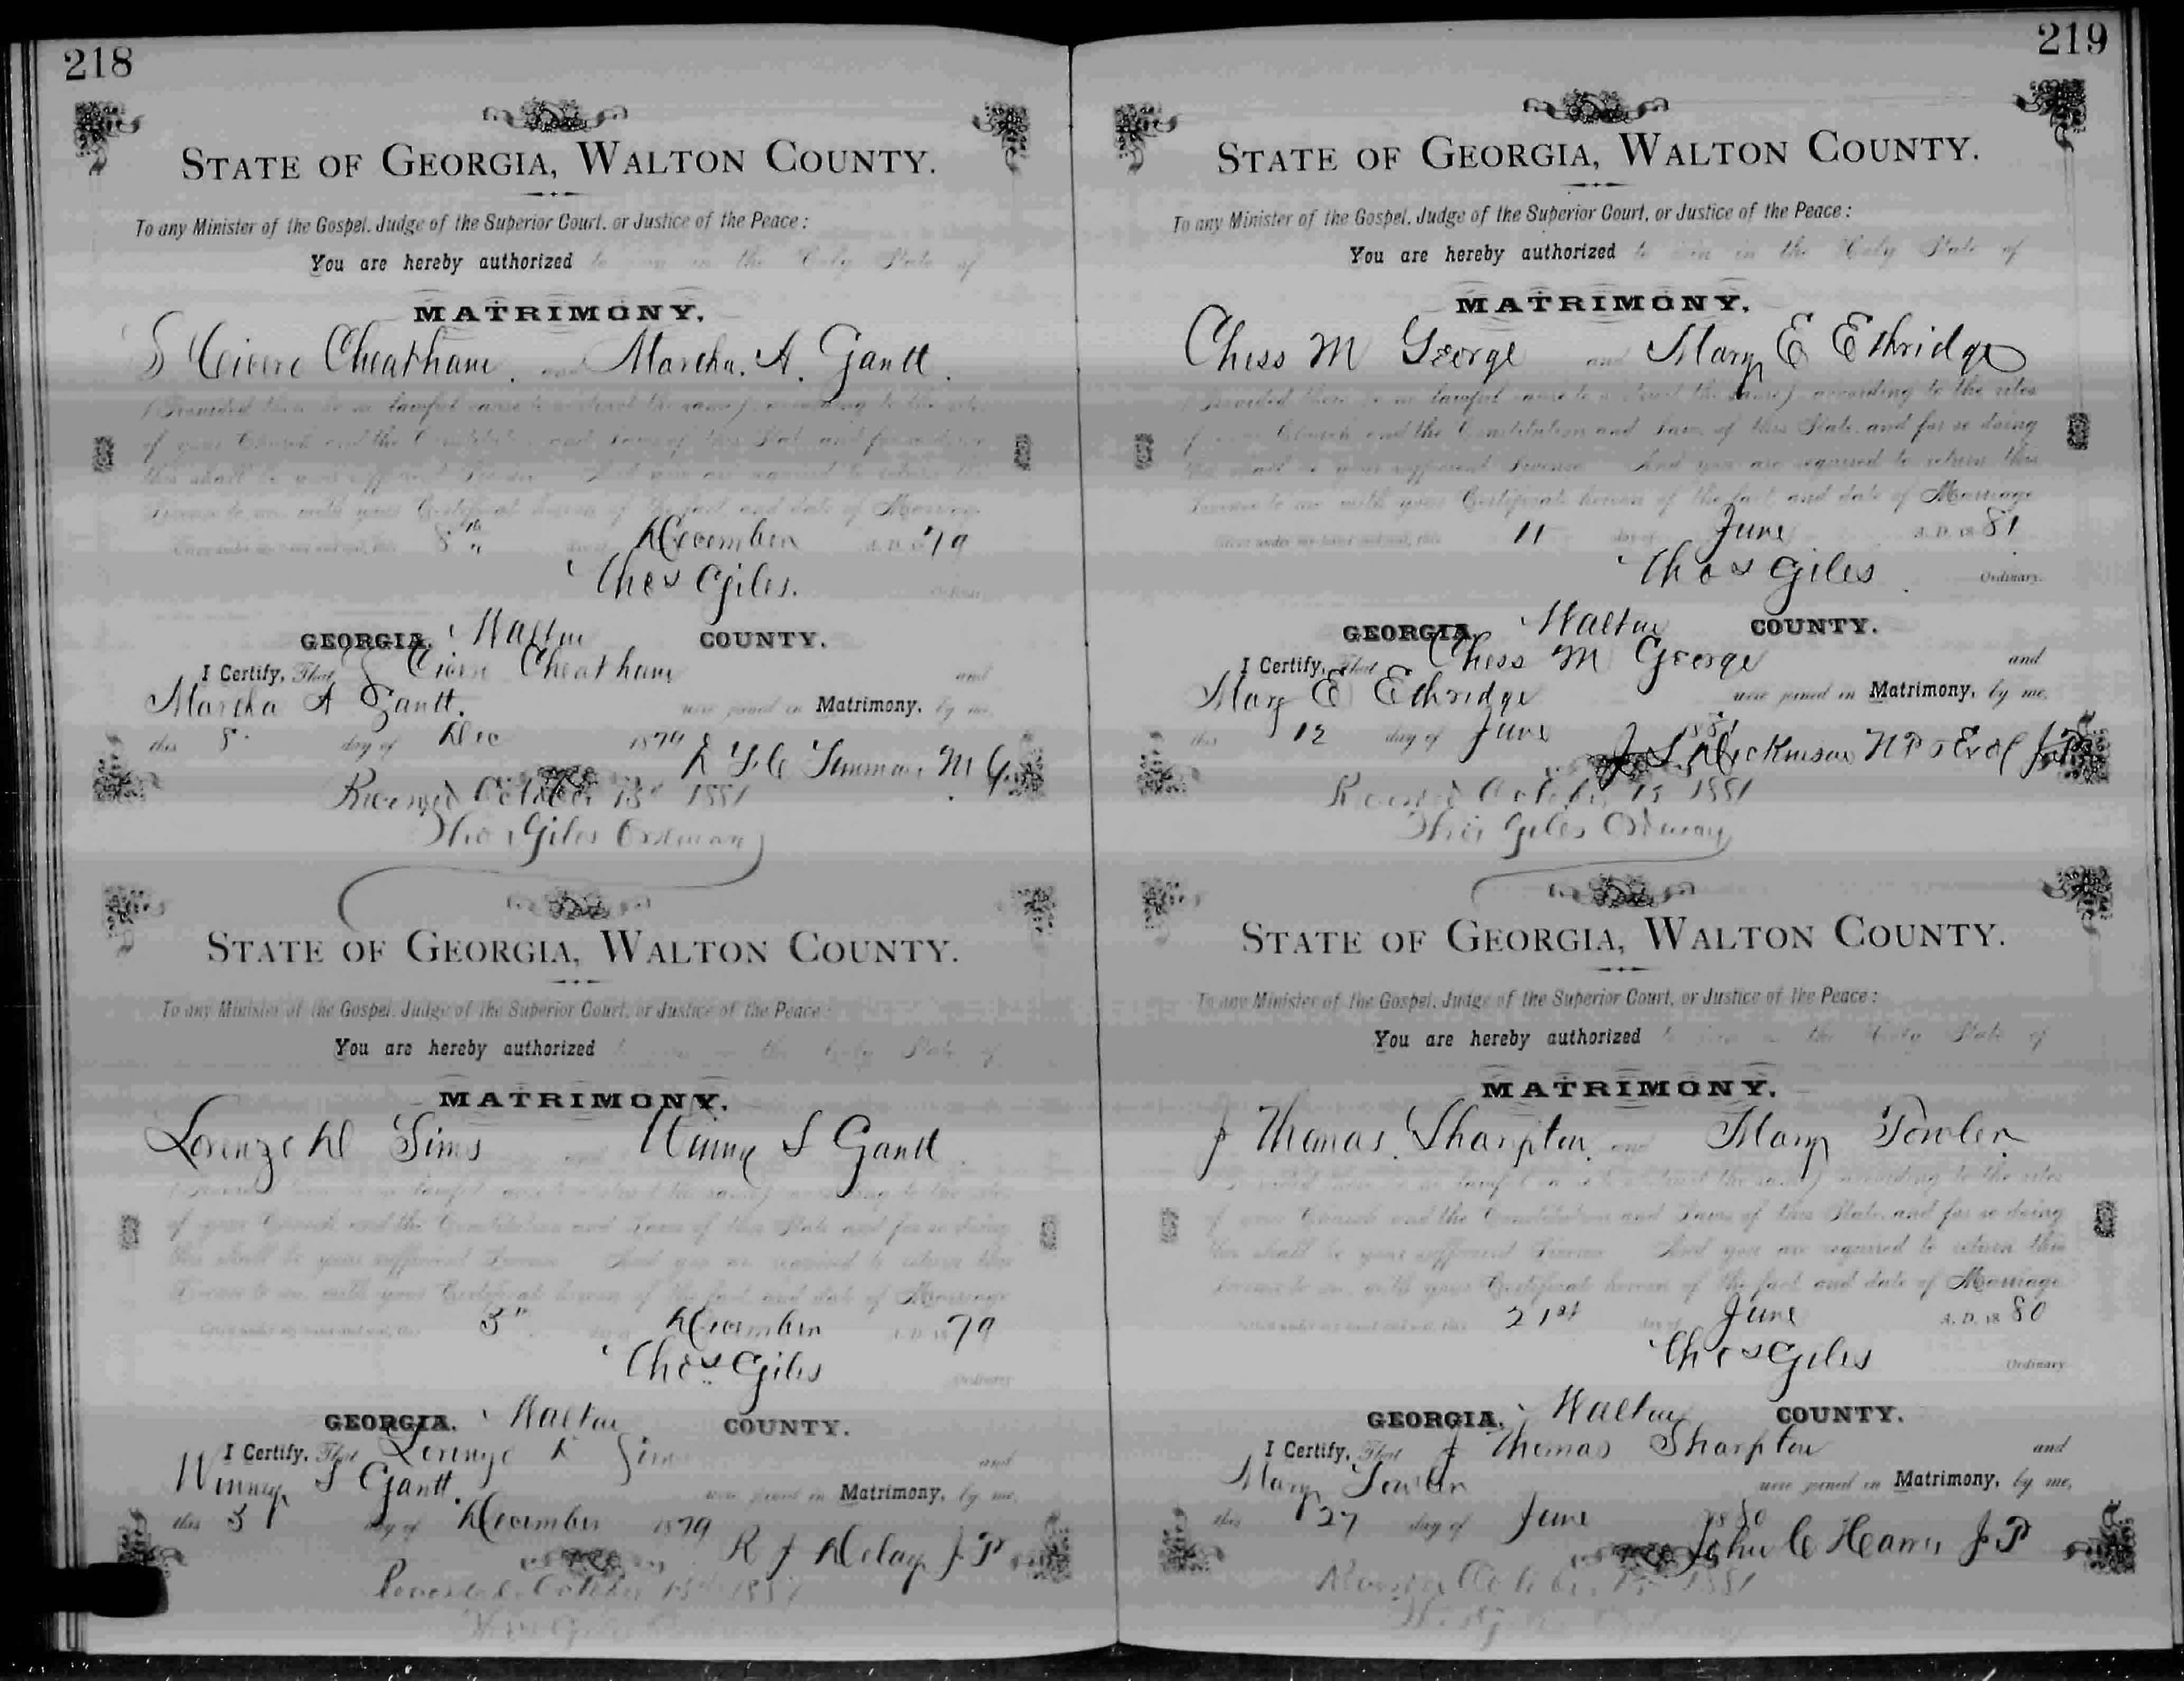 218
STATE OF GEORGIA, WALTON COUNTY.
To any Minister of the Gospel, Judge of the Superior Court, or Justice of the Peace:
You are hereby authorized to join in the Holy State of
MATRIMONY,
Cicero Cheatham and Martha. A. Gantt.
(Provided there be no lawful cause to obstruct the same) according to the rites
of your Church and the Constitution and Laws of this State, and for so doing
this shall be your sufficient License. And you are required to return this
License to me with your Certificate hereon of the fact and date of Marriage
Given under my hand and seal, this 8th day of December A. D. 1879
Thos Giles. Ordinary
GEORGIA, Walton COUNTY.
I Certify, That Cicero Cheatham and
Martha A Gantt. were joined in Matrimony, by me,
this 8 day of Dec 1879 M G
Received October 13th 1881
Tho Giles Ordinary
STATE OF GEORGIA, WALTON COUNTY.
To any Minister of the Gospel, Judge of the Superior Court, or Justice of the Peace:
You are hereby authorized to join in the Holy State of
MATRIMONY,
Lorenzo D Sims and Winny S Gantt
(Provided there be no lawful cause to obstruct the same) according to the rites
of your Church and the Constitution and Laws of this State and for so doing
this shall be your sufficient License And you are required to return this
License to me with your Certificate hereon of the fact and date of Marriage
Given under my hand and seal, this 3" day of December A. D. 1879
Thos Giles Ordinary
GEORGIA, Walton COUNTY.
I Certify, That Lorenzo D Sims and
Winny S Gantt. were joined in Matrimony, by me,
this day of December 1879 R J Delay J. P
October 13th 1881
219
STATE OF GEORGIA, WALTON COUNTY.
To any Minister of the Gospel, Judge of the Superior Court, or Justice of the Peace:
You are hereby authorized to join in the Holy State of
MATRIMONY,
Chess M George and Mary E Ethridge
(Provided there be no lawful cause to obstruct the same) according to the rites
of your Church and the Constitution and Laws of this State, and for so doing
this shall be your sufficient License And you are required to return this
License to me with your Certificate hereon of the fact and date of Marriage
Given under my hand and seal, this 11 day of June A. D. 1881
Thos Giles Ordinary.
GEORGIA, Walton COUNTY.
I Certify, That Chess M George and
Mary E Ethridge were joined in Matrimony, by me,
this 12 day of June 1881 Dickinson N P
Received October 1881
Thos Giles Ordinary
STATE OF GEORGIA, WALTON COUNTY.
To any Minister of the Gospel, Judge of the Superior Court, or Justice of the Peace:
You are hereby authorized to join in the Holy State of
MATRIMONY,
J Thomas Sharpton and Mary Towler
(Provided there be no lawful cause to obstruct the same) according to the rites
of your Church and the Constitution and Laws of this State, and for so doing
this shall be your sufficient License And you are required to return this
License to me with your Certificate hereon of the fact and date of Marriage
Given under my hand and seal, this 21st day of June A. D. 1880
Thos Giles Ordinary
GEORGIA, Walton COUNTY.
I Certify, That J Thomas Sharpton and
Mary Towler were joined in Matrimony, by me,
this 27 day of June 1880 John C Harris J P
October 1881